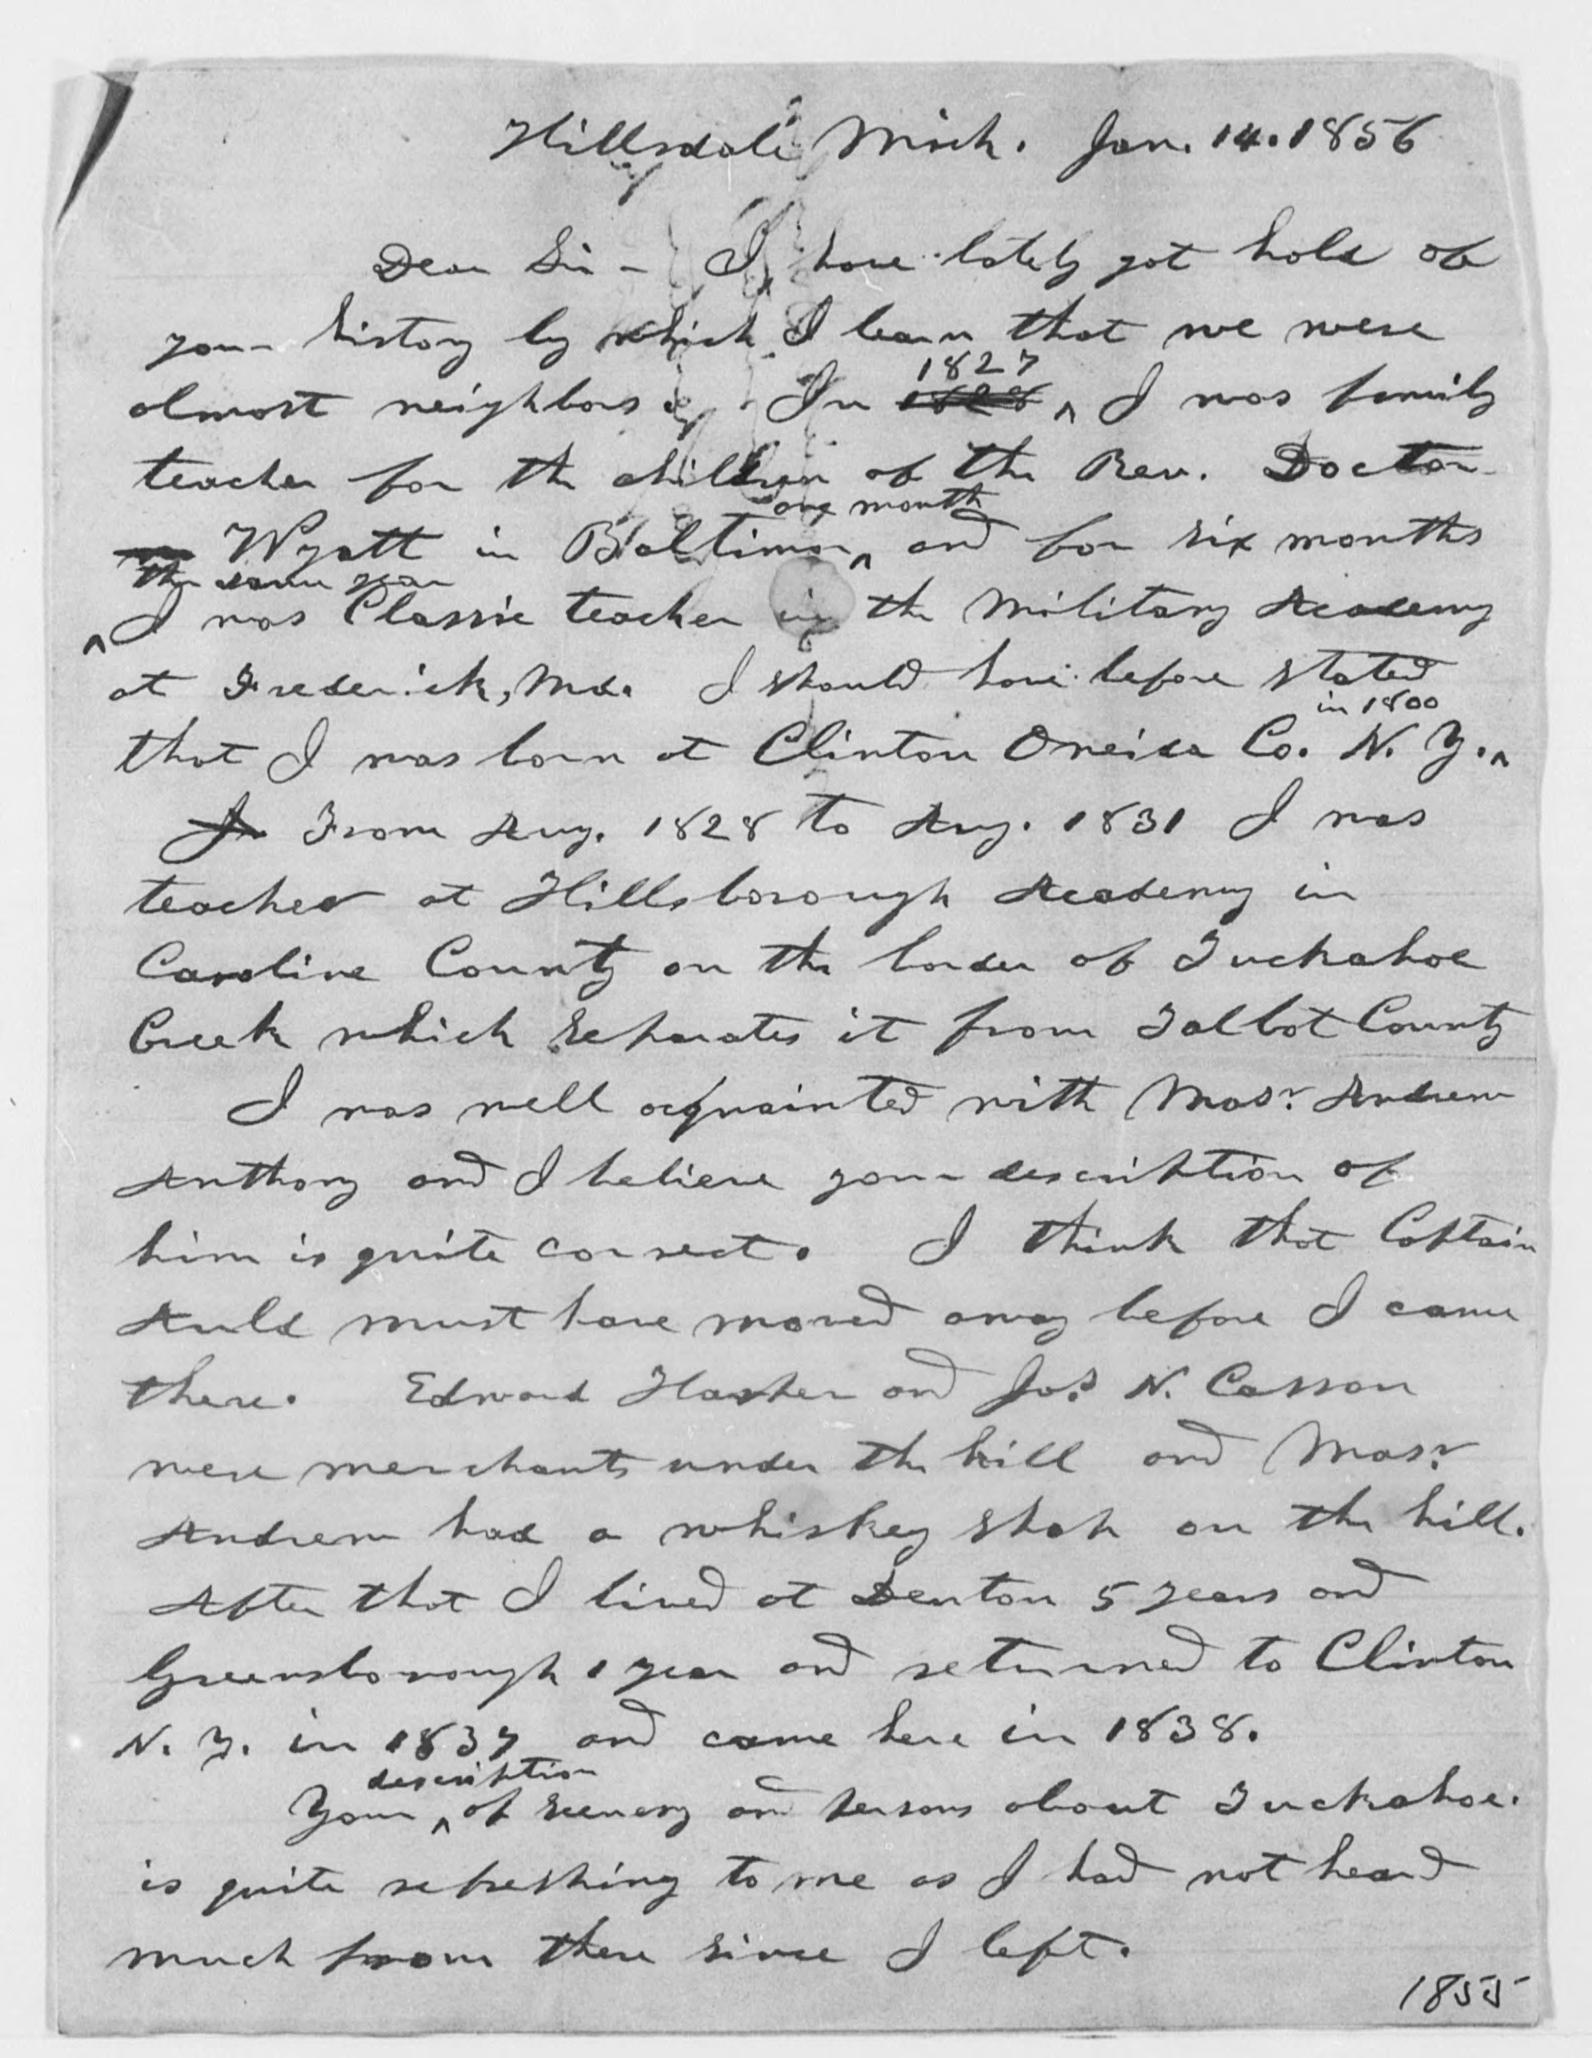 Hillsdale Mich. Jan. 14. 1856
Dear Sir - I have lately got hold of
your history by which I learn that we were
almost neighbors. In 1828 ^ 1827 I was family
teacher for the children of the Rev. Doctor
Wyatt in Baltimore ^ one month and for six months
^ the same year I was Classic teacher in the Military Academy
at Frederick, Md. I should have before stated
that I was born at Clinton Oneida Co. N. Y. ^ in 1800
In From Aug. 1828 to Aug. 1831 I was
teacher at Hillsborough Academy in
Caroline County on the border of Tuckahoe
Creek which separates it from Talbot County
I was well acquainted with Masr. Andrew
Anthony and I believe your description of
him is quite correct. I think that Captain
Auld must have moved away before I came
there. Edward Harper and Jas. N. Casson
were merchants under the hill and Masr.
Andrew had a whiskey shop on the hill.
After that I lived at Denton 5 years and
Greensborough 1 year and returned to Clinton
N. Y. in 1837 and came here in 1838.
Your ^ description of scenery and persons about Tuckahoe.
is quite refreshing to me as I had not heard
much from there since I left.
1855